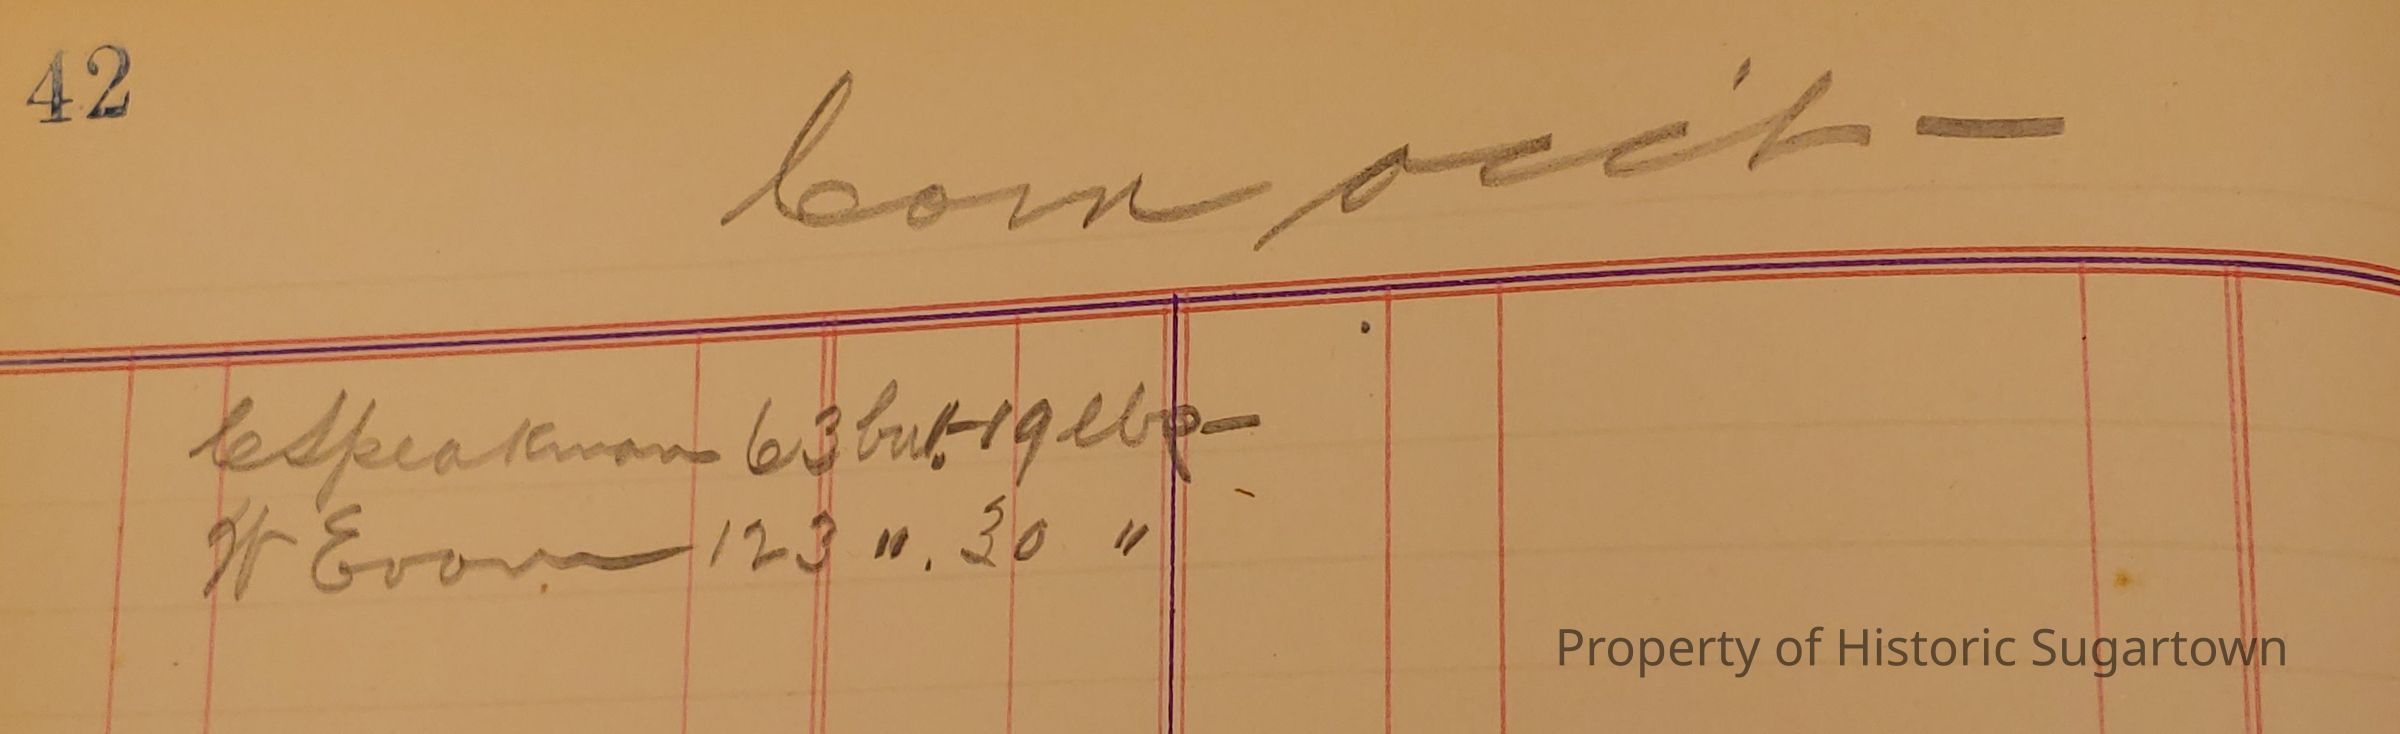 42
Corn acc't —
C Speakman 63 bu. - 19 lbs —
W Evans 123 " . 30 "
Property of Historic Sugartown